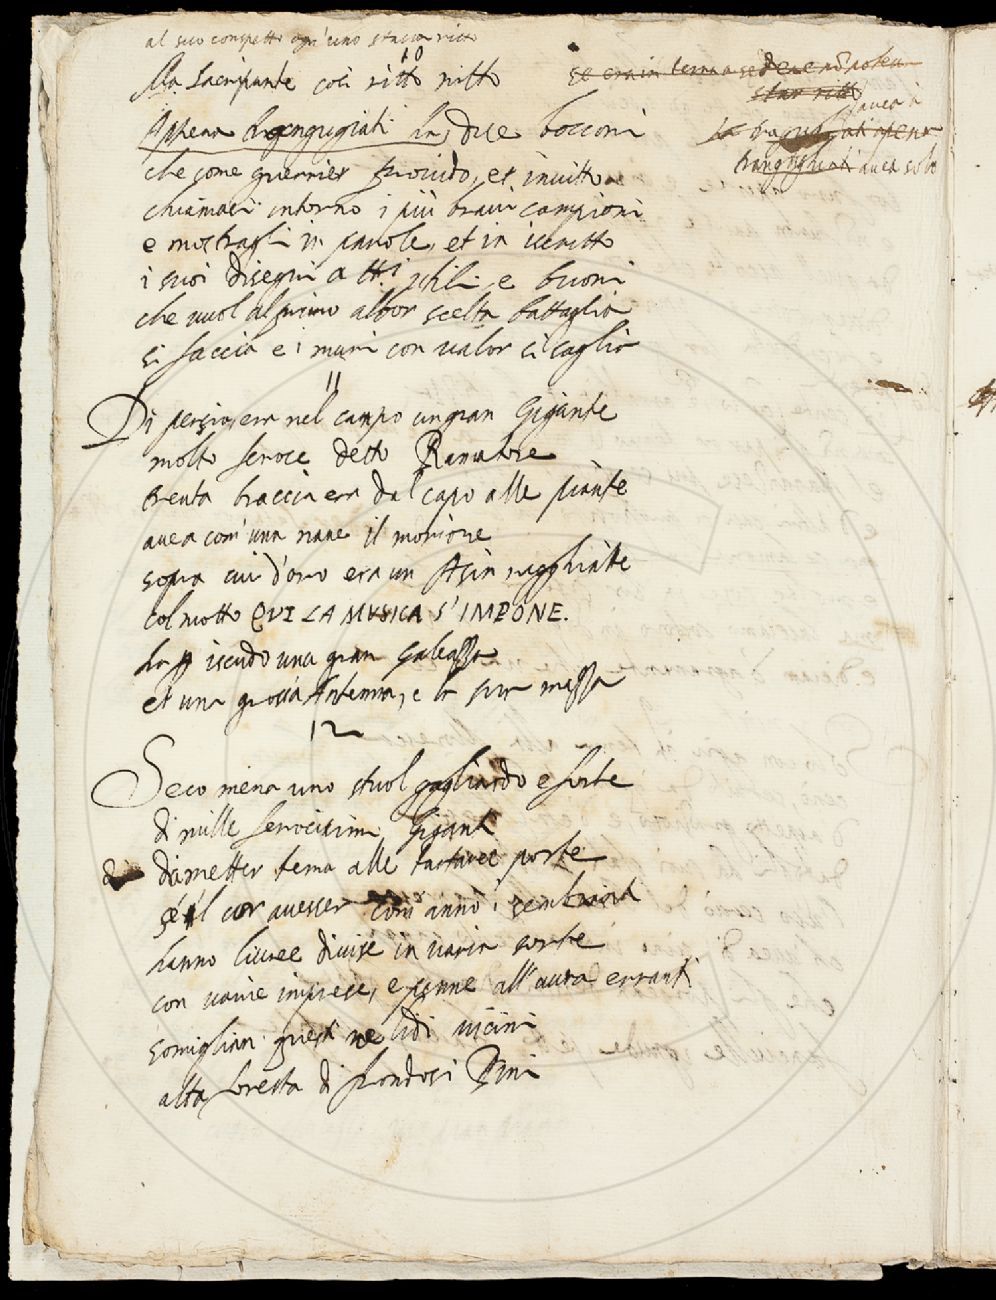 al suo conspetto ogn'uno stava ritto
10
Ma Sacripante così ritto ritto
Appena trangugiati ha due bocconi
che come guerrier provido, et invitto
chiamasi intorno i più bravi campioni
e mostragli in parole, et in iscritto
i suoi disegni atti utili e buoni
che vuol al primo albor scelta battaglia
si faccia e i muri con valor si saglia
11
Di persia era nel campo un gran Gigante
molto feroce detto
trenta braccia era dal capo alle piante
avea com'una nave il morione
sopra cui d'oro era un Asin ragghiante
col motto QVI LA MVSICA S'IMPONE.
ha iscudo una gran galeazza
et una grossa Antenna, e la sua mazza
12
Seco mena uno stuol gagliardo e forte
di mille ferocissimi Giganti
da metter tema alle tartaree porte
se il cor avesser com'anno i sembianti
hanno livree divise in varia sorte
con varie imprese, e penne all'aura erranti
somiglian questi ne lidi vicini
alta foresta di frondosi Pini
star ritto
avea a
trangugiati avea solo